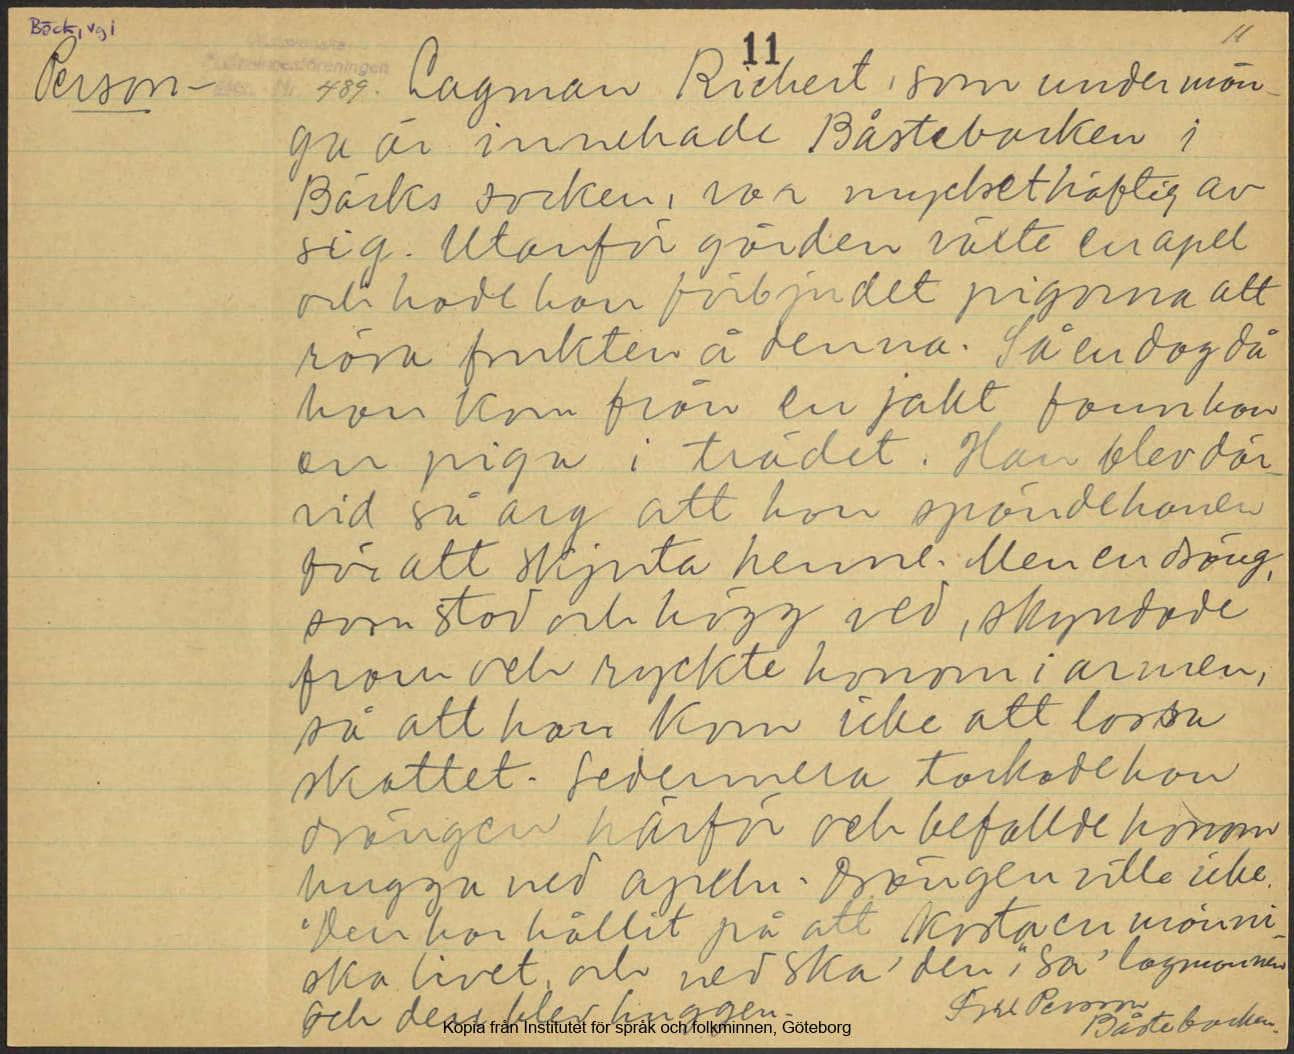 Bäck, Vgl
11
11
Person-
föreningen
489.
Lagman Richert, som under mån-
ga år innehade Båstebacken i
Bäcks socken, var mycket häftig av
sig. Utanför gården växte en apel
och hade han förbjudet pigorna att
röra frukten å denna. Så en dag då
han kom från en jakt fann han
en piga i trädet. Han blev där-
vid så arg att han spände hanen
för att skjuta henne. Men en dräng,
som stod och högg ved, skyndade
fram och ryckte honom i armen,
så att han kom icke att lossa
skottet. Sedermera tackade han
drängen härför och befallde honom
hugga ned apeln. Drängen ville icke.
"Den har hållit på att kosta en männi-
ska livet, och ned ska' den," sa' lagmannen
och den blev huggen.
Person
Båstebacken.
Kopia från Institutet för språk och folkminnen, Göteborg